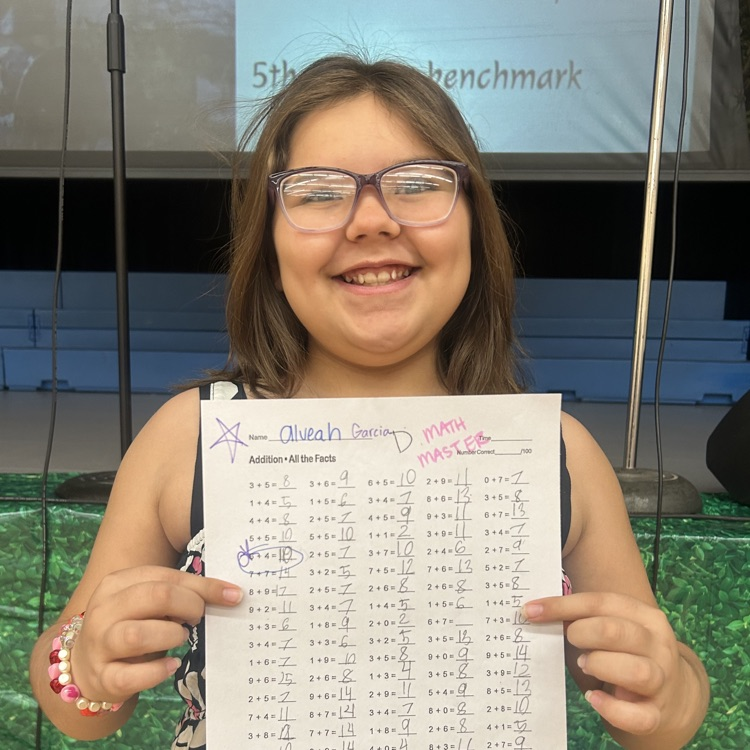 5th benchmark
Name alveah Garcia MATH MASTER Time
Number Correct /100
Addition • All the Facts
3 + 5 = 8 3 + 6 = 9 6 + 5 = 10 2 + 9 = 11 0 + 7 = 7
1 + 4 = 5 1 + 5 = 6 3 + 4 = 7 8 + 6 = 13 3 + 5 = 8
4 + 4 = 8 2 + 5 = 7 4 + 5 = 9 9 + 3 = 11 6 + 7 = 13
5 + 5 = 10 5 + 5 = 10 1 + 1 = 2 3 + 9 = 11 3 + 4 = 7
+ 4 = 10 2 + 5 = 7 3 + 7 = 10 2 + 4 = 6 2 + 7 = 9
7 + 7 = 14 3 + 2 = 5 7 + 5 = 12 7 + 6 = 13 5 + 2 = 7
8 + 9 = 17 2 + 5 = 7 2 + 6 = 8 2 + 6 = 8 3 + 5 = 8
9 + 2 = 11 3 + 4 = 7 1 + 4 = 5 1 + 5 = 6 1 + 4 = 5
3 + 3 = 6 1 + 8 = 9 2 + 0 = 2 6 + 7 = 7 + 3 = 10
3 + 4 = 7 3 + 3 = 6 3 + 2 = 5 3 + 5 = 2 + 6 = 8
1 + 6 = 7 1 + 9 = 10 3 + 5 = 8 9 + 0 = 9 9 + 5 = 14
9 + 6 = 15 2 + 6 = 8 1 + 3 = 4 3 + 5 = 8 3 + 9 = 12
2 + 5 = 7 9 + 6 = 14 2 + 9 = 11 5 + 4 = 9 8 + 5 = 13
7 + 4 = 11 8 + 7 = 14 3 + 4 = 7 8 + 0 = 8 2 + 8 = 10
3 + 8 = 7 + 7 = 14 1 + 8 = 9 2 + 6 = 8 4 + 1 = 5
10 14 4 + 0 = 4 8 + 3 = 11 2 + 7 = 9